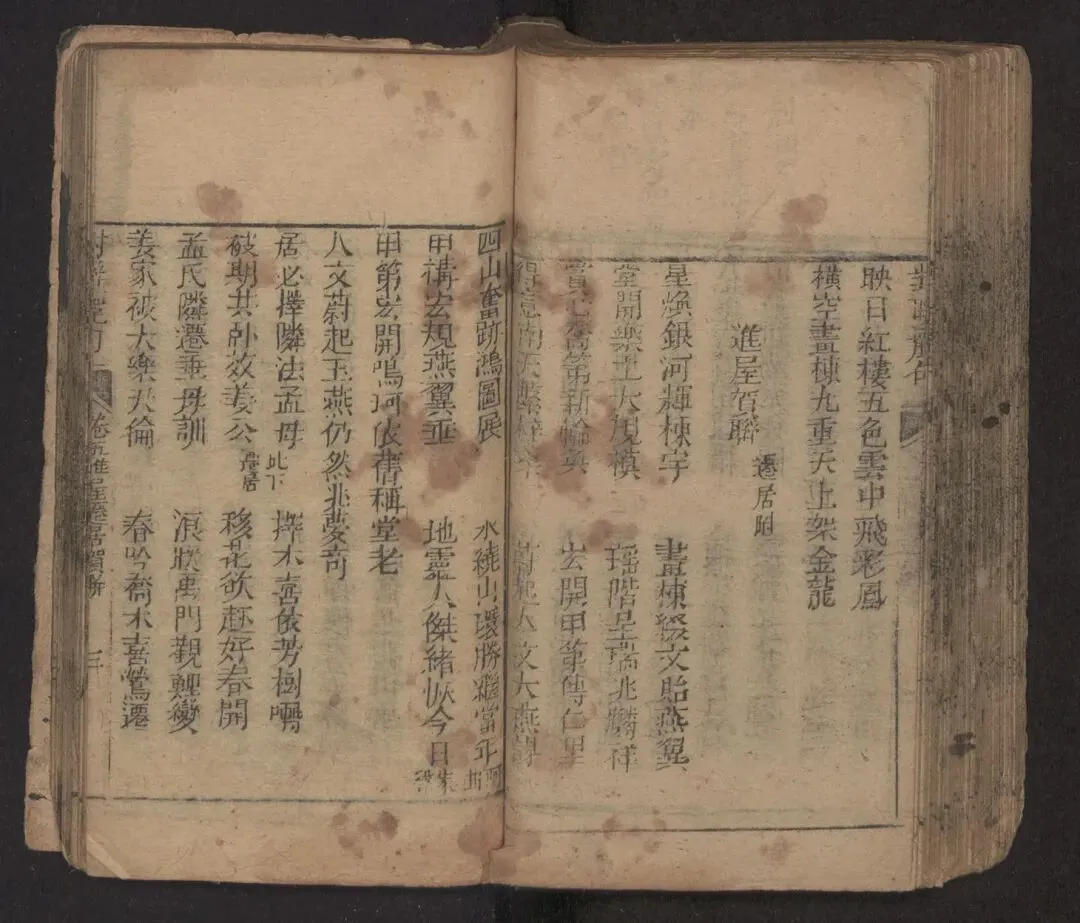 映日紅樓五色雲中飛彩鳳
橫空畫棟九重天上架金龍
進屋賀聯 遷居附
星煥銀河輝棟宇 畫棟發文貽燕翼
堂開樂地大規模 瑤階呈瑞兆麟祥
喬第新輪奐 宏開甲第傳仁里
文大燕
四山奮跡鴻圖展 水繞山環勝繼當年
甲構宏規燕翼垂 地靈人傑緒恢今日
甲第宏開鳴珂依舊稱堂老
人文蔚起玉燕仍然兆夢奇
居必擇隣法孟母 此下遷居 擇木喜依芳樹囀
破期共卦效姜公 移花欲趂好春開
孟氏隣遷垂母訓 浪躍禹門親鯉變
姜家被大樂天倫 春吟喬木喜鶯遷
卷五進屋遷居賀聯 三